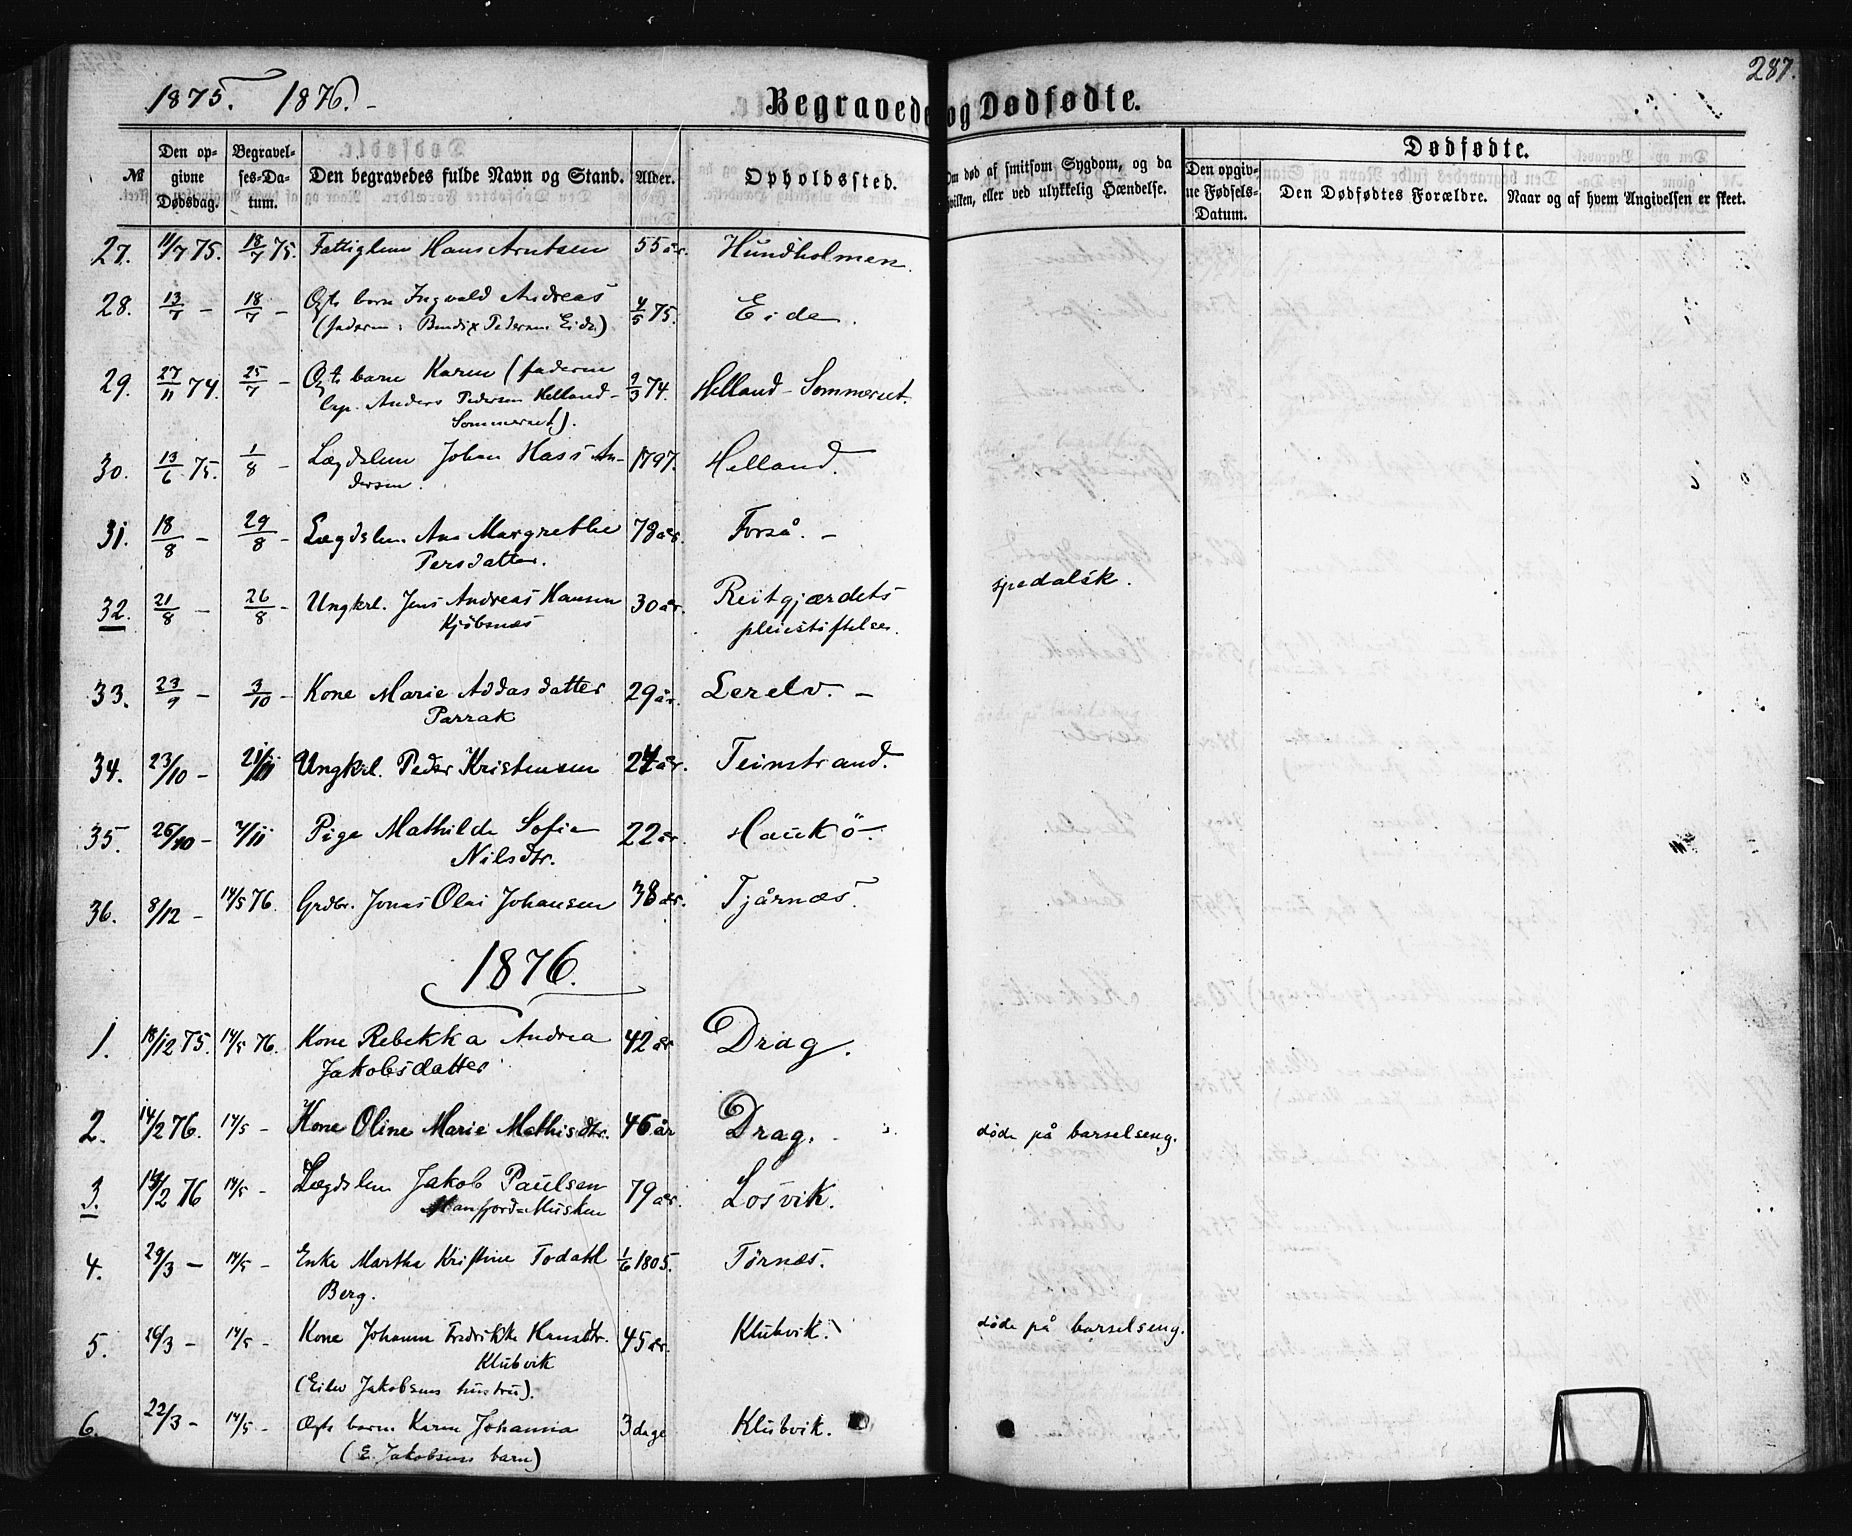 287.
1875. 1876. -
Begravede og Dødfødte.
Dødfødte.
№
Den op-
givne
Dødsdag.
Begravel-
ses-Da-
tum.
Den begravedes fulde Navn og Stand.
Alder.
Opholdssted.
Om død af smitsom Sygdom, og da
hvilken, eller ved ulykkelig Hændelse.
Den opgiv-
ne Fødsels-
Datum.
Den Dødfødtes Forældre.
Naar og af hvem Angivelsen er skeet.
27. 11/7 75. 18/7 75. Fattiglem Hans Arntsen 55 år. Hundholmen.
28. 13/7 - 18/7 - Ægte barn Ingvald Andreas 4/5 75. Eide.
(faderen: Bendix Pedersen Eide.)
29. 27/11 74. 25/7 - Ægte barn Karen (faderen 9/3 74. Helland-Sommerset.
Anders Pedersen Helland-
Sommerset).
30. 13/6 75. 1/8 - Lægdslem Johan Hass An- 1797. Helland.
dersen.
31. 18/8 - 29/8 - Lægdslem. Ane Margrethe 78 år. Forså. -
Persdatter.
32. 21/8 - 26/8 - Ungkrl. Jens Andreas Hansen 30 år. Reitgjærdets spedalsk.
Kjøbsnæs pleiestiftelse.
33. 23/9 - 3/10 - Kone Marie Addasdatter 29 år. Lerelv. -
Parrak
34. 23/10 - 21/11 Ungkrl. Peder Kristensen 24 år. Teinstrand.
35. 26/10 - 7/11 Pige Mathilde Sofie 22 år. Haukö.
Nilsdtr.
36. 8/12 - 14/5 76. Grdbr. Jonas Olai Johansen 38 år. Tjårnæs.
1876.
1. 18/12 75. 14/5 76. Kone Rebekka Andrea 42 år Drag.
Jakobsdatter
2. 14/2 76. 14/5 - Kone Oline Marie Mathisdtr. 46 år Drag. døde på barselseng.
3. 14/2 76 14/5 - Lægdslem Jakob Paulsen 79 år. Losvik.
Manfjord-Musken
4. 29/3 - 14/5 - Enke Martha Kristine Todahl 1/6 1805. Tørnæs.
Berg.
5. 26/3 - 14/5 - Kone Johanna Fredrikke Hansdtr. 45 år. Klubvik. døde på barselseng.
Klubvik
(Eiler Jakobsens hustru).
6. 22/3 - 14/5 - Ægte barn Karen Johanna 3 dage Klubvik.
(E. Jakobsens barn)